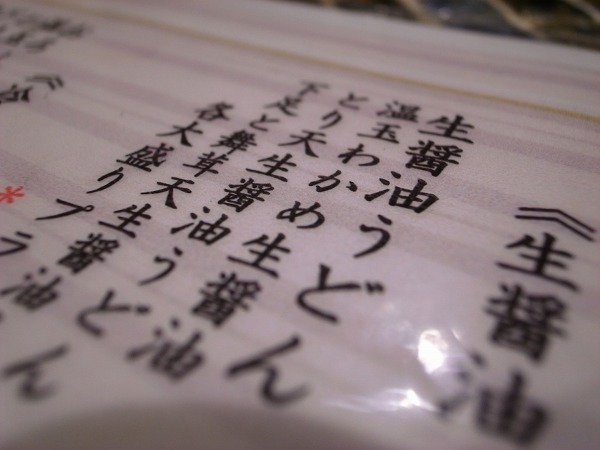 《生醤油
生醤油うどん
温玉わかめ生醤油
とり天生醤油うどん
下足と舞茸天生醤油
各大盛りプラ
*